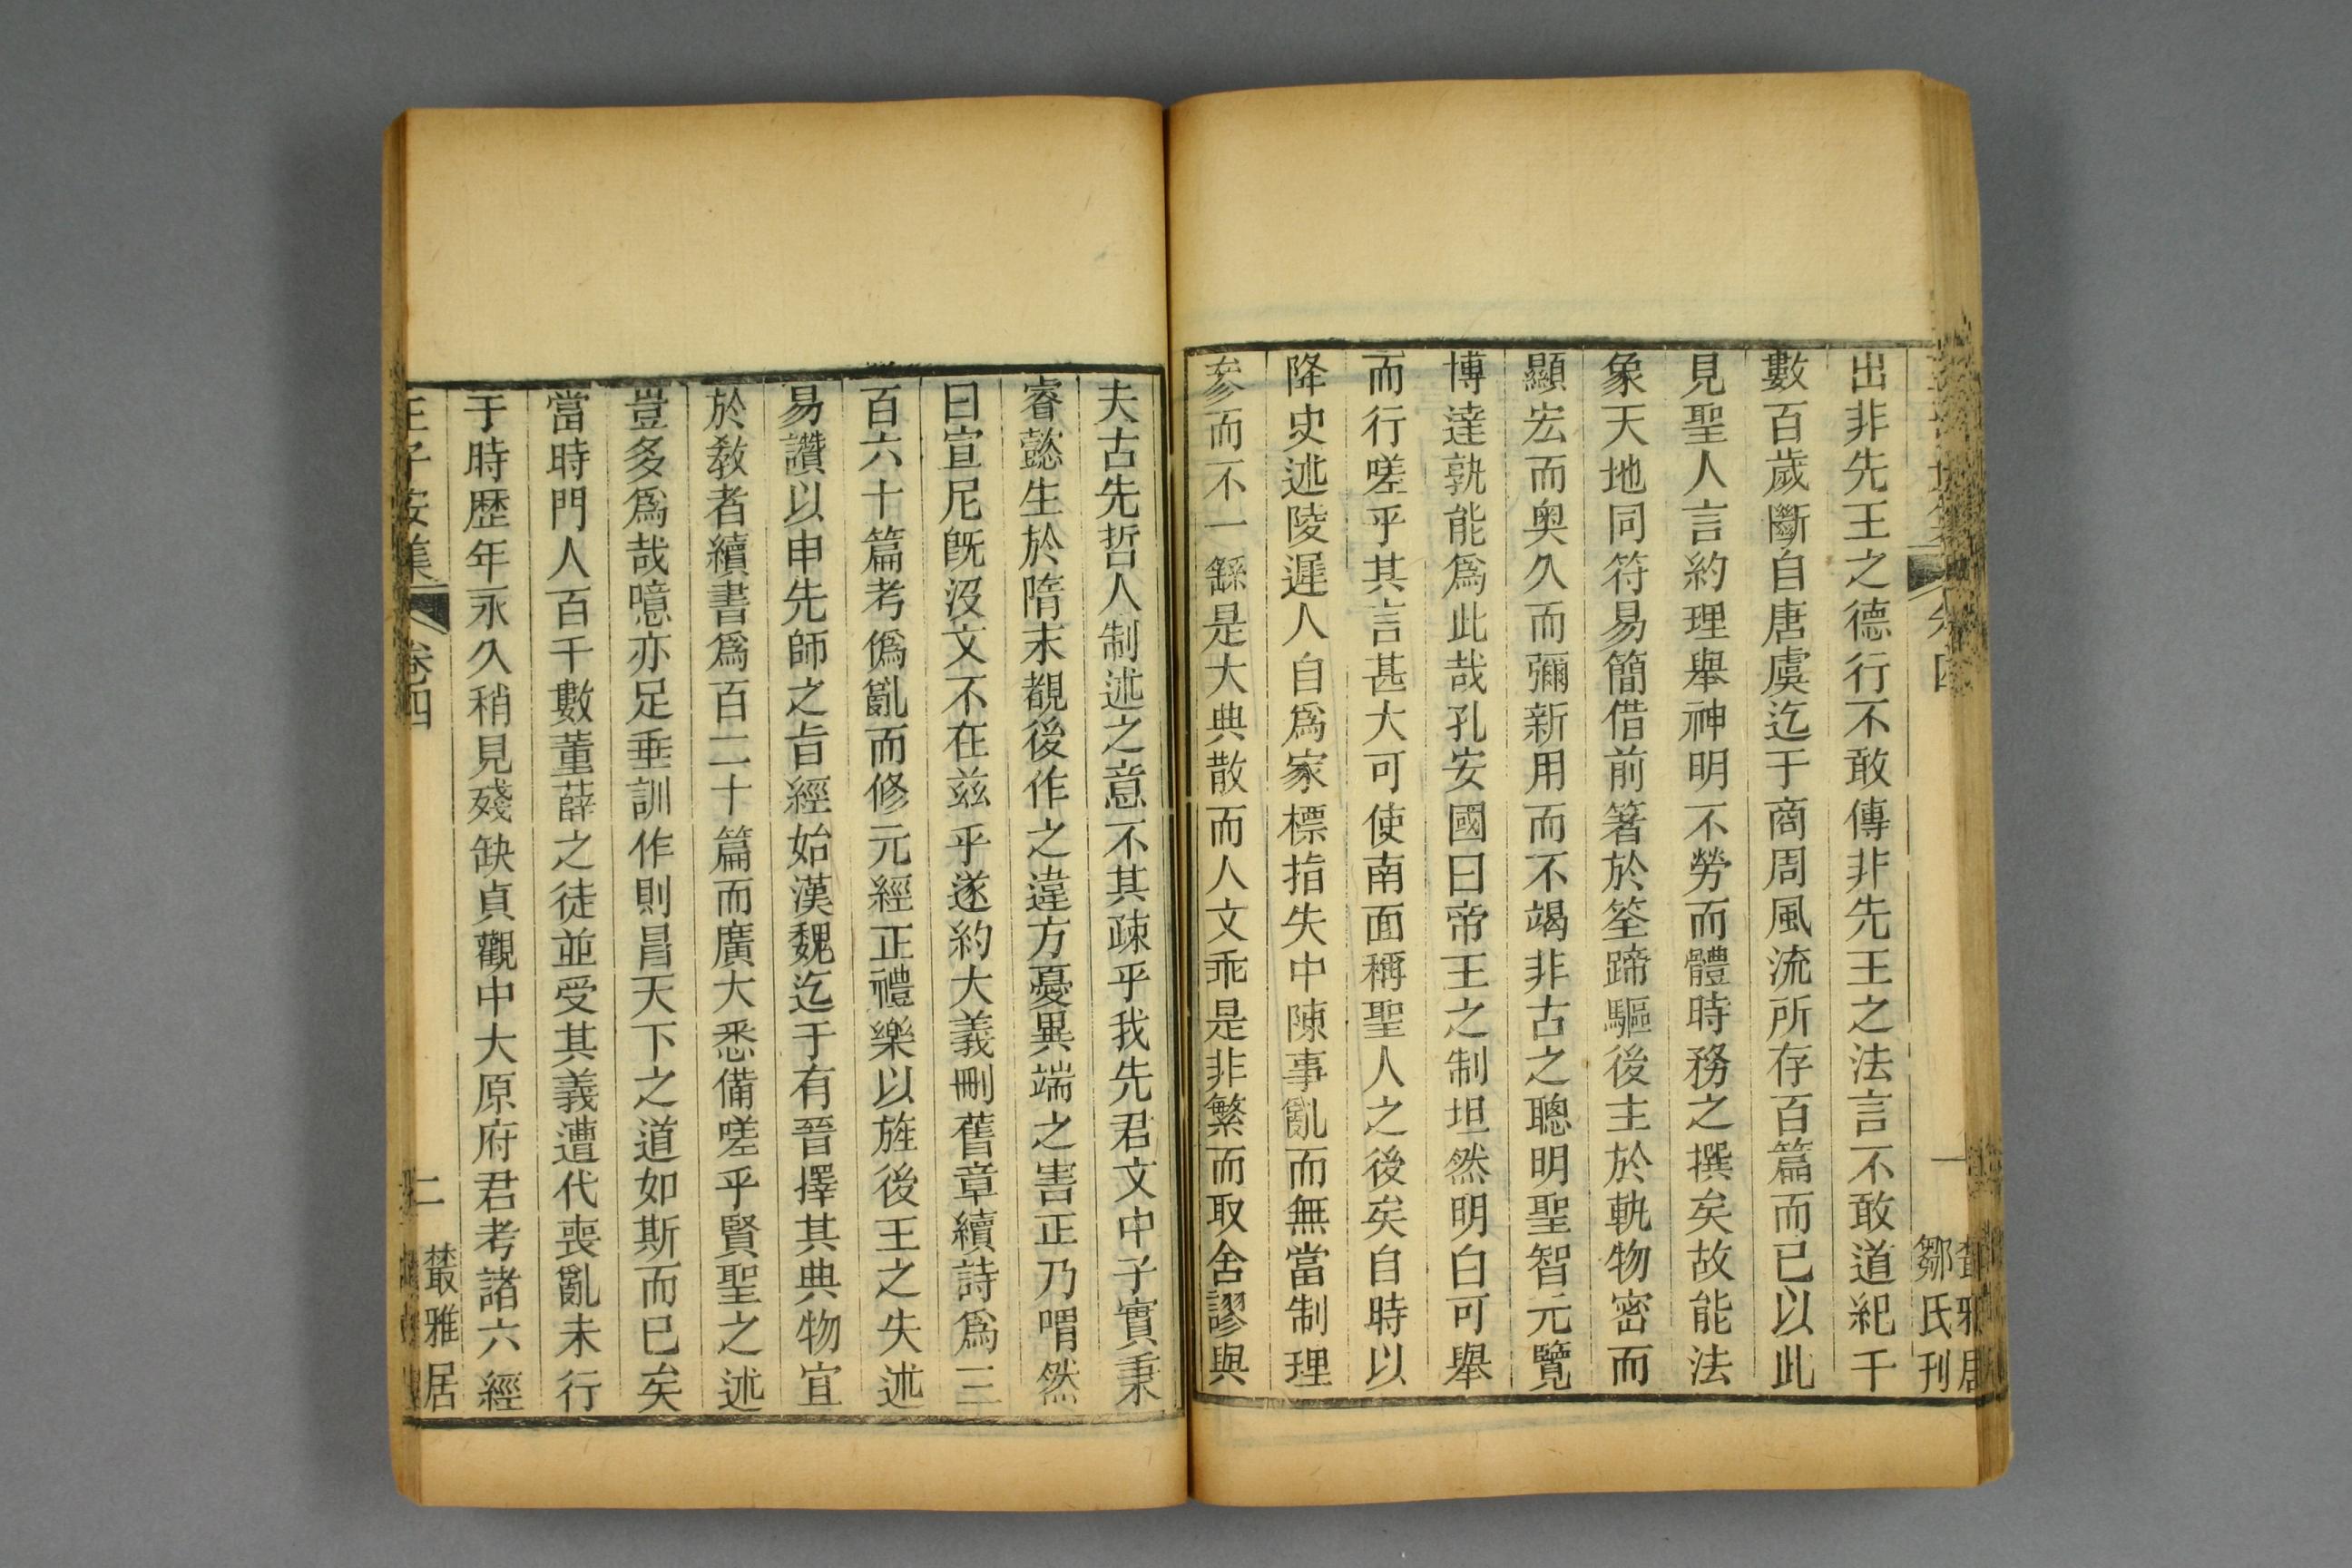 出非先王之德行不敢傳非先王之法言不敢道紀千
數百歲斷自唐虞迄于商周風流所存百篇而已以此
見聖人言約理舉神明不勞而體時務之撰矣故能法
象天地同符易簡借前箸於筌蹄驅後主於軌物密而
顯宏而奥久而彌新用而不竭非古之聰明聖智元覽
博達孰能爲此哉孔安國曰帝王之制坦然明白可舉
而行嗟乎其言甚大可使南面稱聖人之後矣自時以
降史述陵遲人自爲家標指失中陳事亂而無當制理
參而不一繇是大典散而人文乖是非繁而取舍謬與
夫古先哲人制述之意不其疎乎我先君文中子實秉
睿懿生於隋末覩後作之違方憂異端之害正乃喟然
曰宣尼旣沒文不在兹乎遂約大義刪舊章續詩爲三
百六十篇考僞亂而修元經正禮樂以旌後王之失述
易讚以申先師之旨經始漢魏迄于有晉擇其典物宜
於敎者續書爲百二十篇而廣大悉備嗟乎賢聖之述
豈多爲哉噫亦足垂訓作則昌天下之道如斯而已矣
當時門人百千數董薛之徒並受其義遭代喪亂未行
于時歷年永久稍見殘缺貞觀中大原府君考諸六經
王子安集 卷四 二 叢雅居
卷四 一 叢雅居
鄒氏刊